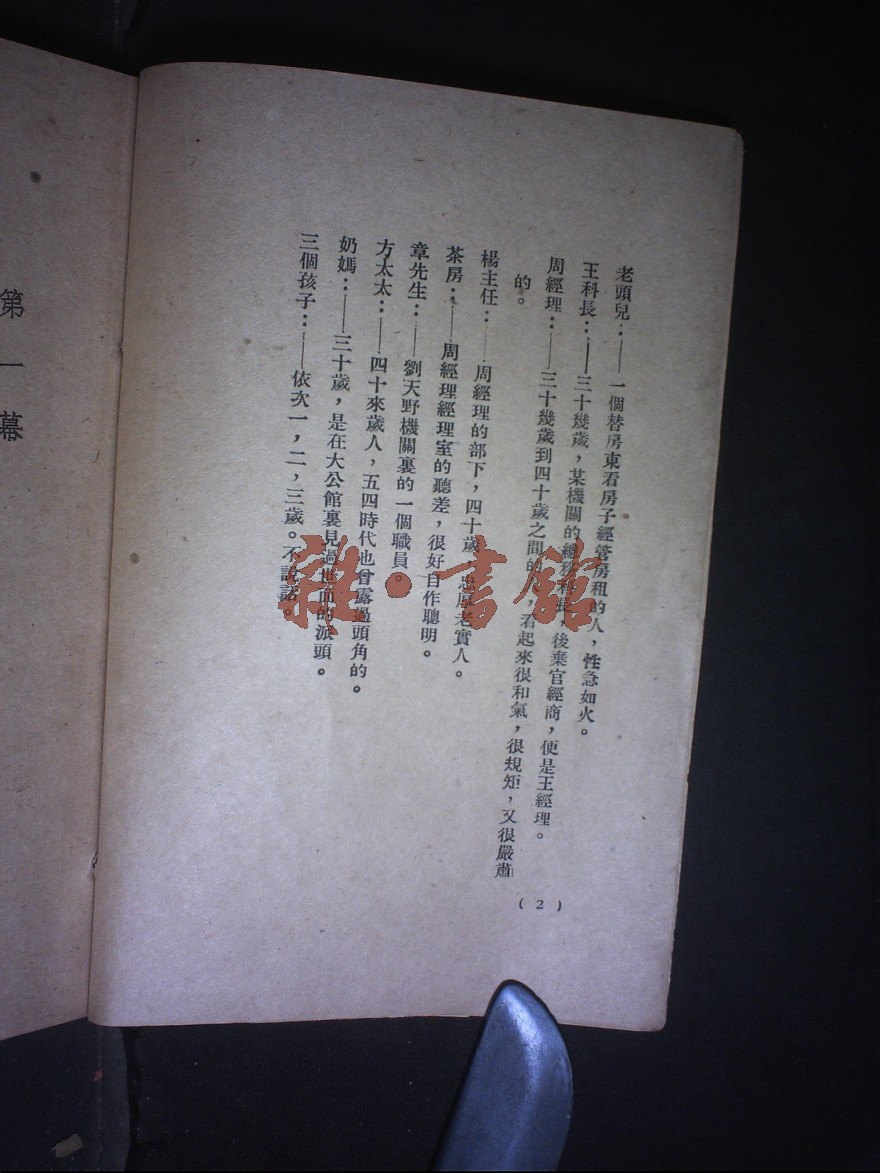 老頭兒：——一個替房東看房子經管房租的人，性急如火。
王科長：——三十幾歲，某機關的總務科長，後棄官經商，便是王經理。
周經理：——三十幾歲到四十歲之間的，看起來很和氣，很規矩，又很嚴肅
的。
楊主任：——周經理的部下，四十歲，忠厚老實人。
茶房：——周經理經理室的聽差，很好自作聰明。
章先生：——劉天野機關裏的一個職員。
方太太：——四十來歲人，五四時代也曾露過頭角的。
奶媽：——三十歲，是在大公館裏見過世面的派頭。
三個孩子：——依次一，二，三歲。不說話。
( 2 )
第一幕
雜·書館